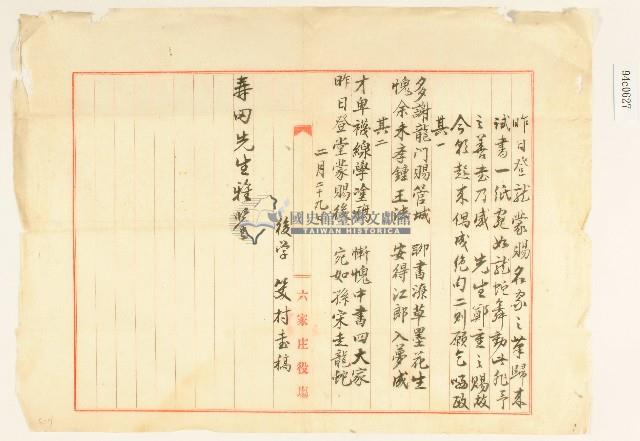 昨日登龍蒙賜名家之筆歸來
試書一紙宛如龍蛇舞動此非予
之善書乃感 先生鄭重之賜故
今朝起來偶成絕句二則願乞哂政
其一
多謝龍門賜管城 聊書潦草墨花生
愧余未學鍾王法 安得江郎入夢成
其二
才卑襪線學塗鴉 慚愧中書四大家
昨日登堂蒙賜後 宛如孫宋走龍蛇
二月二十九日
後學 笑村書稿
壽田先生雅鑒
六家庄役場
國史館臺灣文獻館
TAIWAN HISTORICA
94c0627